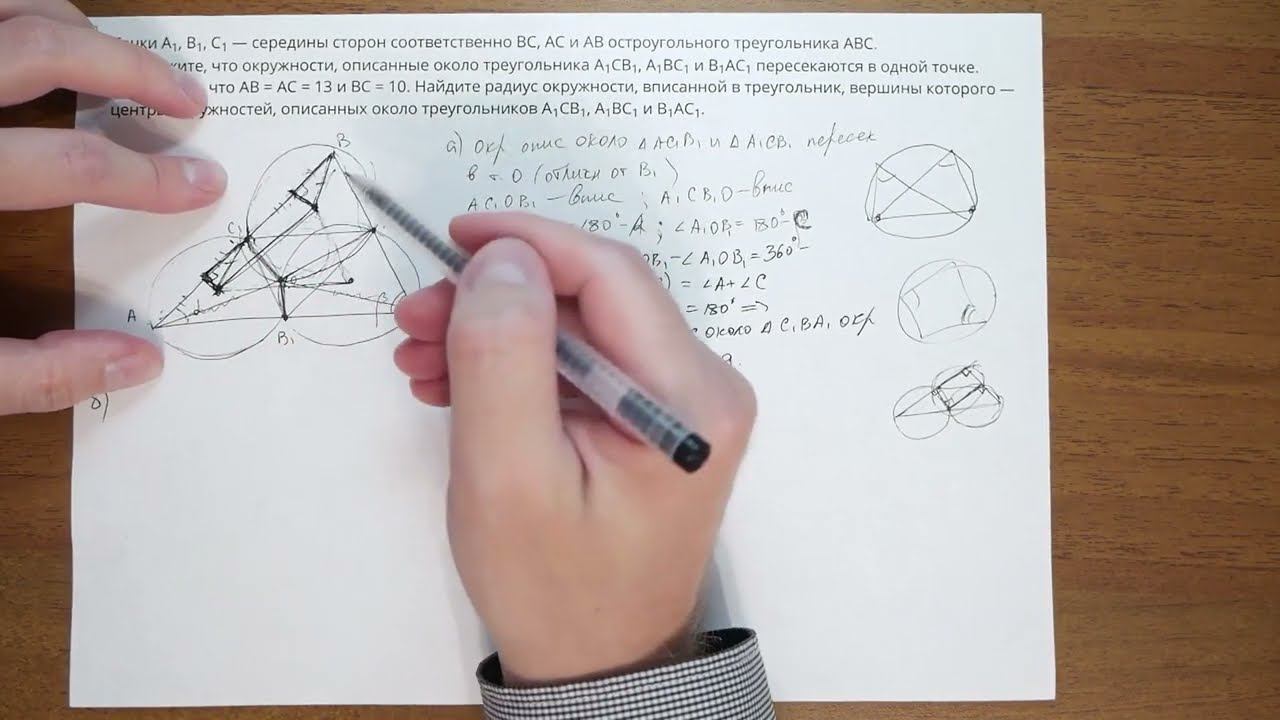 A₁, B₁, C₁ — середины сторон соответственно BC, AC и AB остроугольного треугольника ABC.
что окружности, описанные около треугольника A₁CB₁, A₁BC₁ и B₁AC₁ пересекаются в одной точке.
что AB = AC = 13 и BC = 10. Найдите радиус окружности, вписанной в треугольник, вершины которого —
описанных около треугольников A₁CB₁, A₁BC₁ и B₁AC₁.
а) Окр опис около △AC₁B₁ и △A₁CB₁ пересек
в т. O (отличн от B₁)
AC₁OB₁ - впис ; A₁CB₁O - впис
180° - A ; ∠A₁OB₁ = 180° - C
OB₁ - ∠A₁OB₁ = 360° -
) = ∠A + ∠C
= 180° =>
около △C₁BA₁ окр
B
C₁
A
B₁
б)